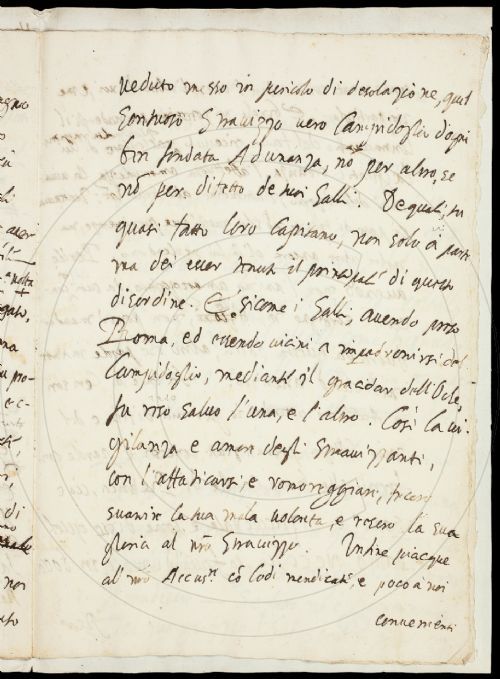 veduto messo in pericolo di desolazione, quel
Sontuoso Stravizzo vero Campidoglio d'ogni
ben fondata Adunanza, nō per altro, se
nō per difetto de tuoi Galli. De quali, tu
quasi fatto loro Capitano, non solo à parte
ma dei esser tenuto il principal di questo
disordine. E sicome i Galli, avendo preso
Roma, ed essendo vicini a impadronirsi del
Campidoglio, mediante il gracidar dell'Oche,
fu reso salvo l'una, e l'altro. Così la vi-
gilanza e amor degli Stravizzanti,
con l'affaticarsi, e romoreggiare, fecero
svanire la tua mala volontà, e resero la sua
gloria al nr̃o Stravizzo. Infine piacque
all' nr̃o Accus.re cō lodi mendicate, e poco à noi
convenienti